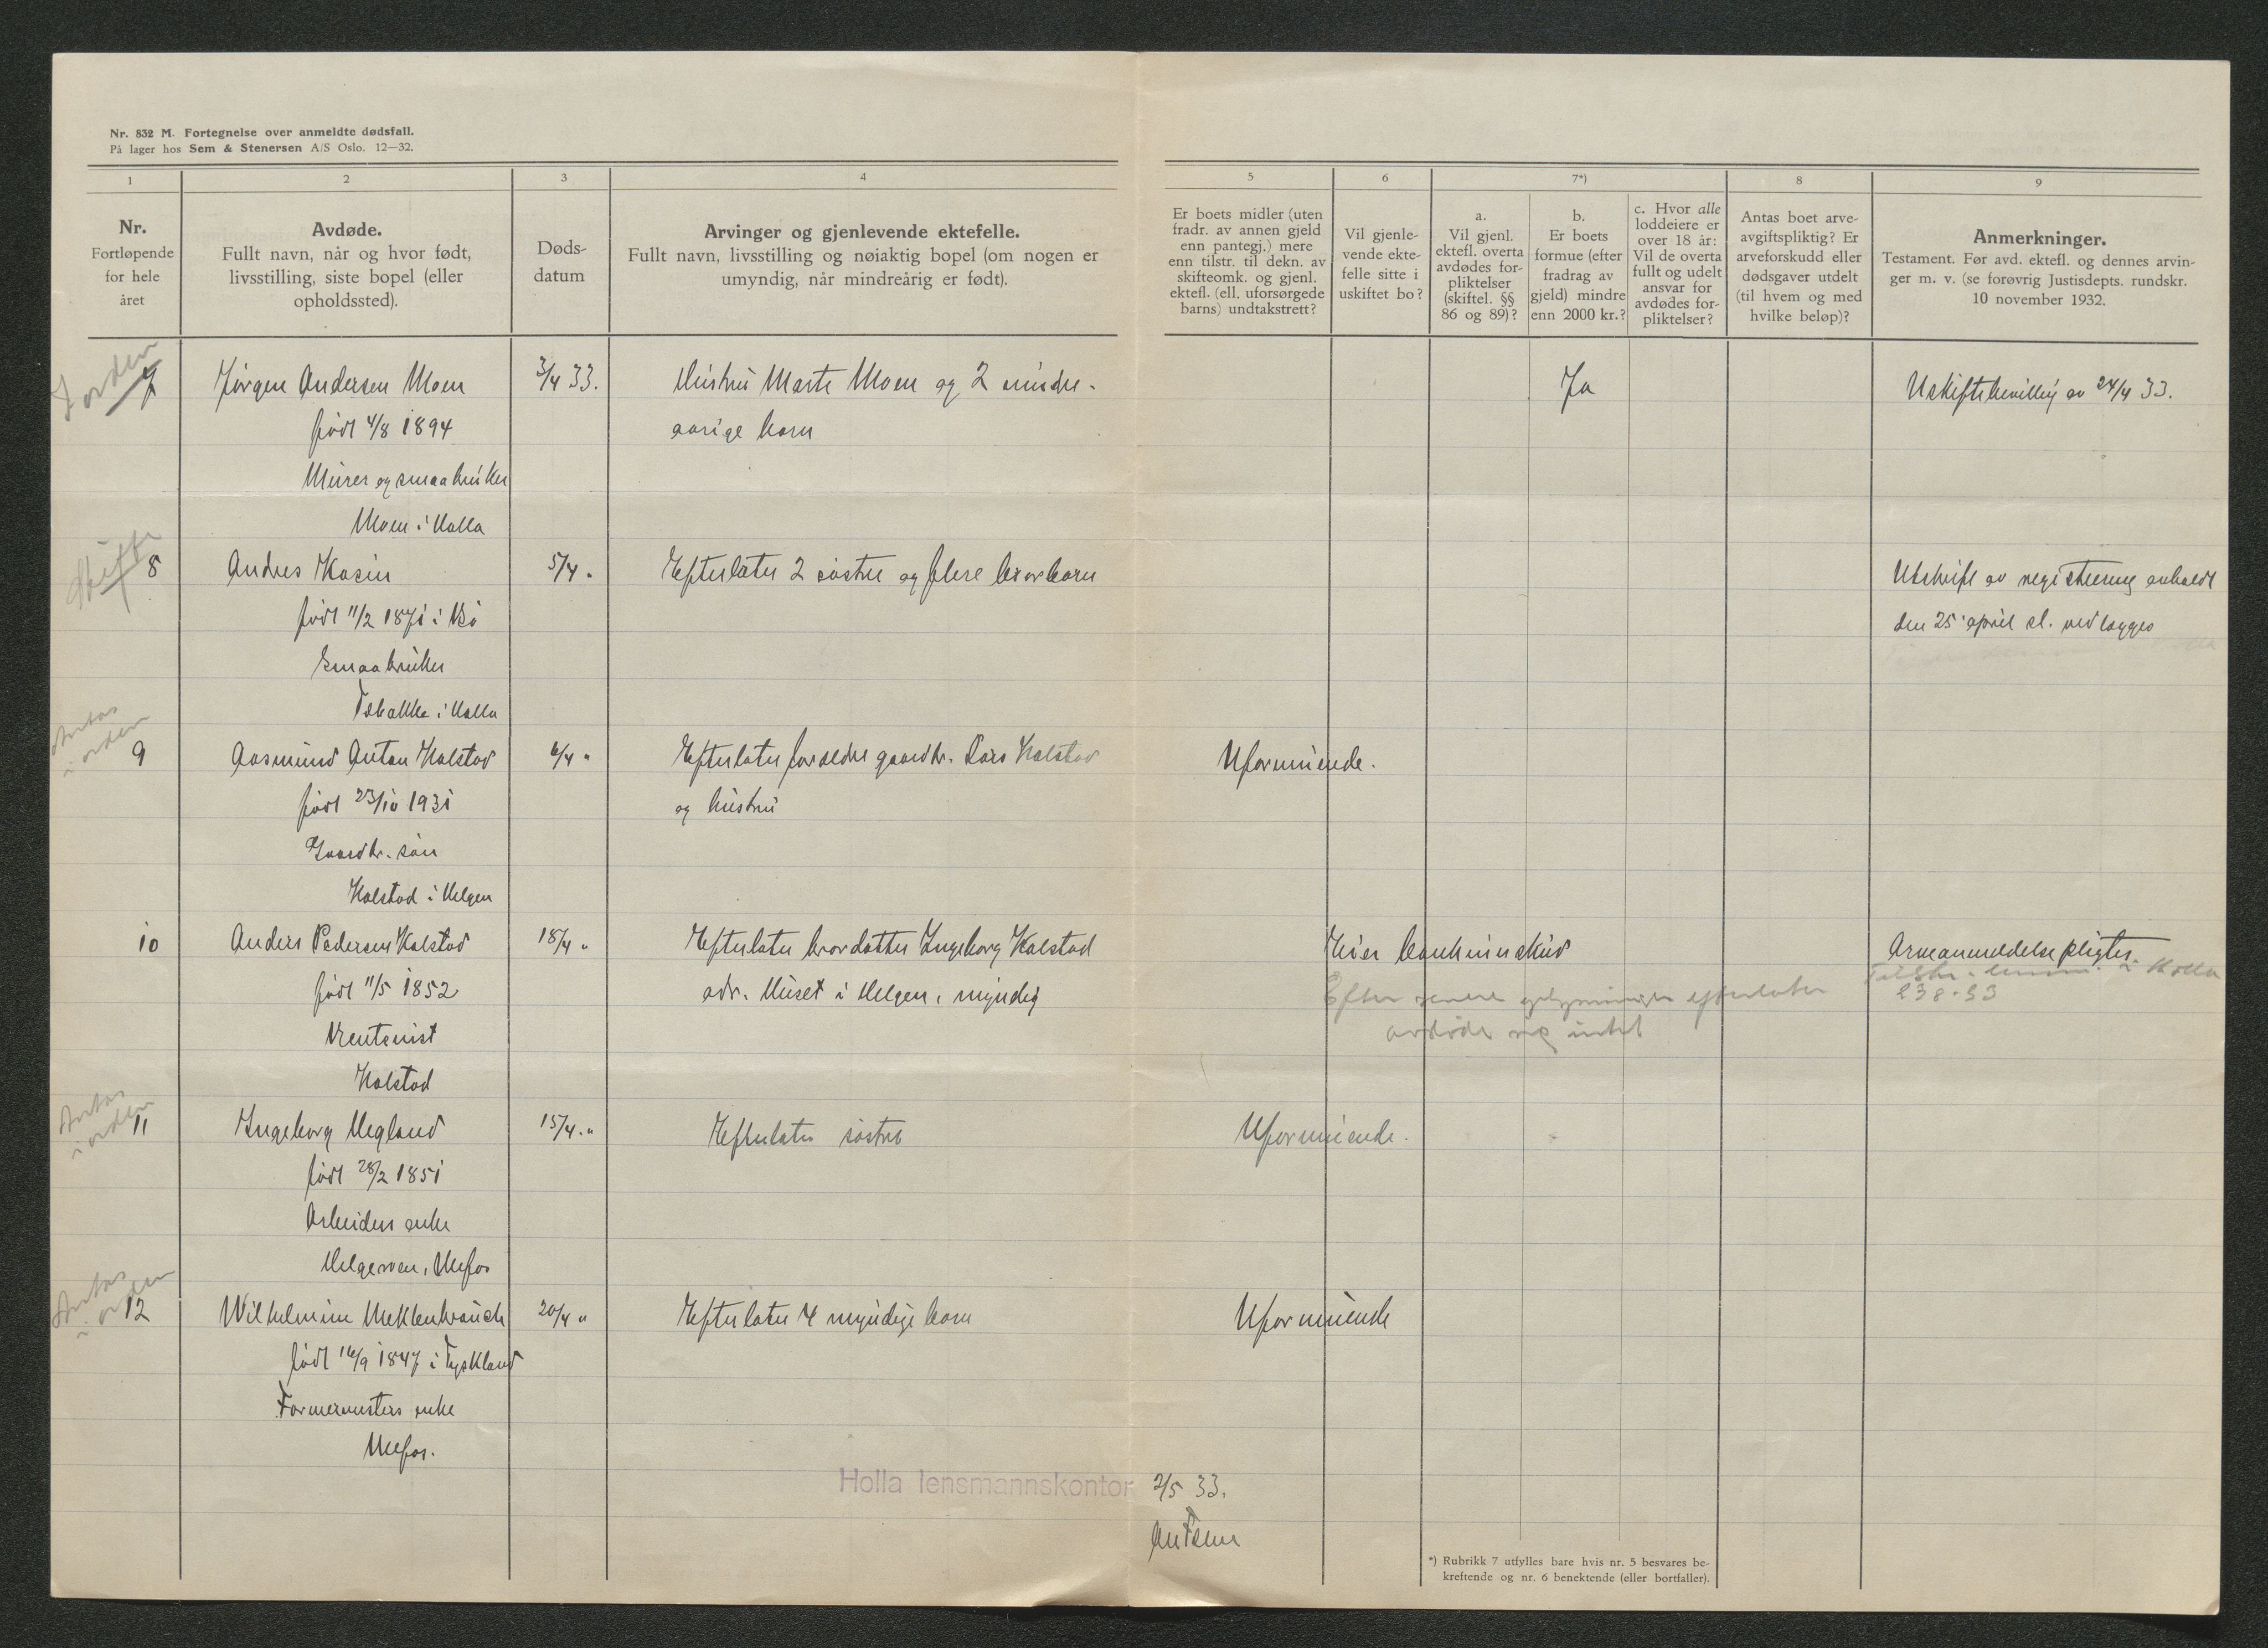 Nr. 832 M. Fortegnelse over anmeldte dødsfall.
På lager hos Sem & Stenersen A/S Oslo. 12—32.
1
2
3
4
5
6
7*)
8
9
Nr.
Fortløpende
for hele
året
Avdøde.
Fullt navn, når og hvor født,
livsstilling, siste bopel (eller
opholdssted).
Døds-
datum
Arvinger og gjenlevende ektefelle.
Fullt navn, livsstilling og nøiaktig bopel (om nogen er
umyndig, når mindreårig er født).
Er boets midler (uten
fradr. av annen gjeld
enn pantegj.) mere
enn tilstr. til dekn. av
skifteomk. og gjenl.
ektefl. (ell. uforsørgede
barns) undtakstrett?
Vil gjenle-
vende ekte-
felle sitte i
uskiftet bo?
a.
Vil gjenl.
ektefl. overta
avdødes for-
pliktelser
(skiftel. §§
86 og 89)?
b.
Er boets
formue (efter
fradrag av
gjeld) mindre
enn 2000 kr.?
c. Hvor alle
loddeiere er
over 18 år:
Vil de overta
fullt og udelt
ansvar for
avdødes for-
pliktelser?
Antas boet arve-
avgiftspliktig? Er
arveforskudd eller
dødsgaver utdelt
(til hvem og med
hvilke beløp)?
Anmerkninger.
Testament. Før avd. ektefl. og dennes arvin-
ger m. v. (se forøvrig Justisdepts. rundskr.
10 november 1932.
I orden
7
Jørgen Andersen Moen
3/4 33.
Hustru Marte Moen og 2 mindre-
Ja
Uskiftebevilling av 24/4 33.
født 4/8 1894
aarige barn
Murer og smaabruker
Moen i Holla
Skifte
8
Andres Kasin
5/4 "
Efterlater 2 søstre og flere brorbarn
Utskrift av registrering avholdt
født 11/2 1871 i Bø
den 25 april sl. vedlægges
Smaabruker
i Holla
Antas
i orden
9
Aasmund Anton Kolstad
6/4 "
Efterlater foreldre gaardbr. Lars Kolstad
Uformuende.
født 23/10 1931
og hustru
Gaardbr. søn
Kolstad i Helgen
10
Anders Pedersen Kolstad
18/4 "
Efterlater brordatter Ingeborg Kolstad
Eier bankinnskud
Arveanmeldelse pligter.
født 11/5 1852
adr. Huset i Helgen, myndig
Efter senere oplysninger efterlater
i Holla
23 8-33
avdøde sig intet
Rentenist
Kolstad
Antas
i orden
11
Ingeborg Hegland
15/4 "
Efterlater søstre
Uformuende.
født 28/2 1851
Arbeiders enke
Helgeroen, Ulefos
Antas
i orden
12
Wilhelmine Meklenbrauck
20/4 "
Efterlater 4 myndige barn
Uformuende
født 16/9 1847 i Tyskland
Formermesters enke
Ulefos.
Holla lensmannskontor 2/5 33.
*) Rubrikk 7 utfylles bare hvis nr. 5 besvares be-
kreftende og nr. 6 benektende (eller bortfaller).